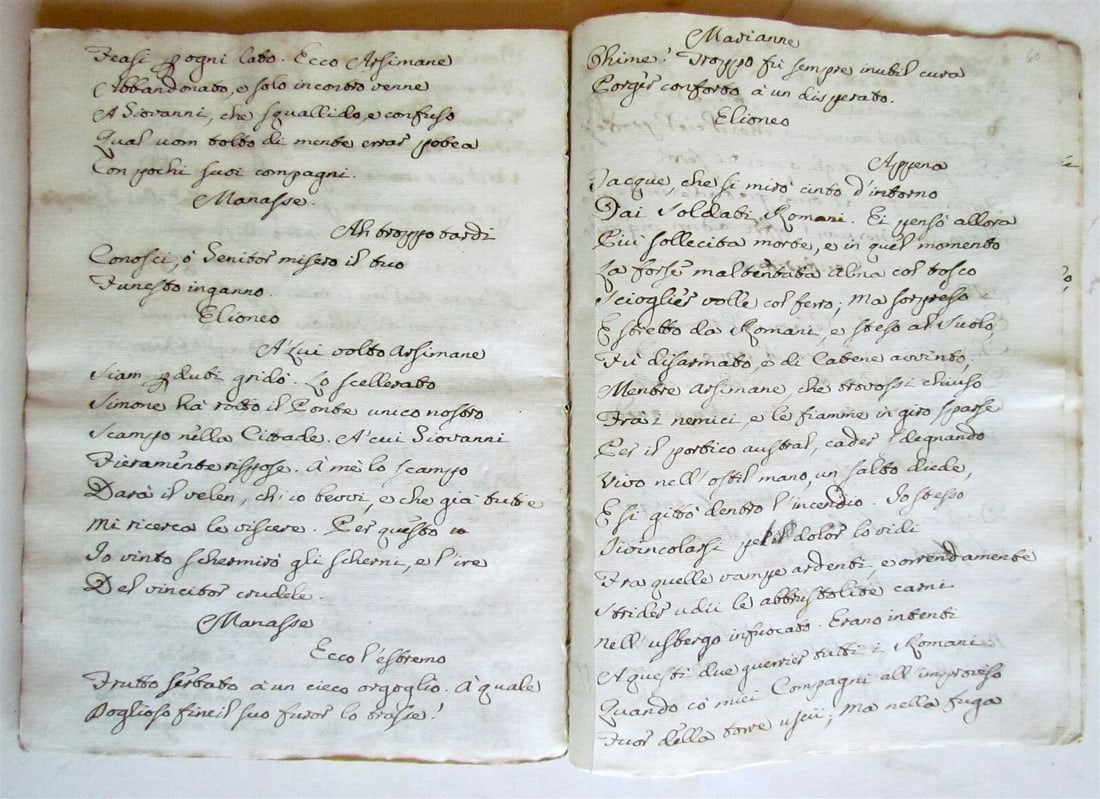 Feasi ꝑ ogni lato. Ecco Arsimane
Abbandonato, e solo incontro venne
A Giovanni, che squallido, e confuso
Qual uom tolto di mente errar potea
Con pochi suoi compagni.
Manasse.
Ah troppo tardi
Conosci, ò Genitor misero il tuo
Funesto inganno.
Elioneo
A Lui volto Arsimane
Siam ꝑduti gridò. Lo scellerato
Simone hà rotto il Ponte unico nostro
Scampo nella Cittade. A' cui Giovanni
Fieramente rispose. A mè lo scampo
Darà il velen, ch'io bevvi, e che già tutte
Mi ricerca le viscere. Per questo
Io vinto schermirò gli scherni, e l'ire
Del vincitor crudele.
Manasse
Ecco l'estremo
Frutto serbato à un cieco orgoglio. A' quale
Doglioso fine il suo furor lo trasse!
Marianne
Ohime! Troppo fù sempre inutil cura
Porger conforto à un disperato.
Elioneo
60
Appena
Jacque, che si mirò cinto d'intorno
Dai Soldati Romani. Ei pensò allora
Più sollecita morte, e in quel momento
La forse mal tentata alma col tosco
Scioglier volle col ferro; Ma sorpreso
E stretto da Romani, e steso al Suolo,
Fù disarmato, e di Catene avvinto,
Mentre Arsimane, che trovossi chiuso
Fra i nemici, e le fiamme in giro sparse
Per il portico austral, cader sdegnando
Vivo nell'ostil mano, un salto diede,
E si gittò dentro l'incendio. Io stesso
Divincolarsi pel dolor lo vidi
Fra quelle vampe ardenti, e orrendamente
Strider udii le abbrustolite carni
Nell'usbergo infuocato. Erano intenti
A questi due guerrier tutti i Romani
Quando co' miei Compagni all'improviso
Fuor della torre uscii; Ma nella fuga